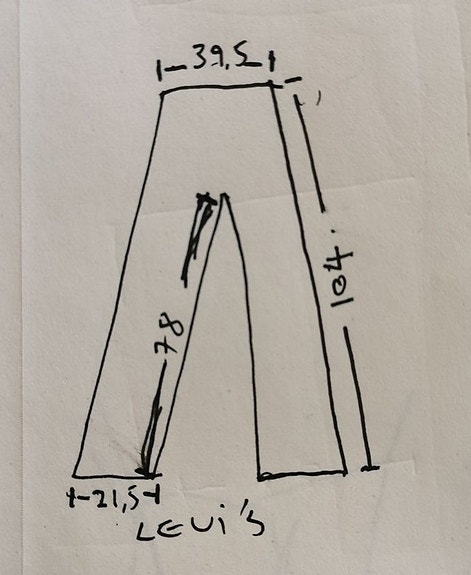 39,5
104
78
21,5
LEVI's